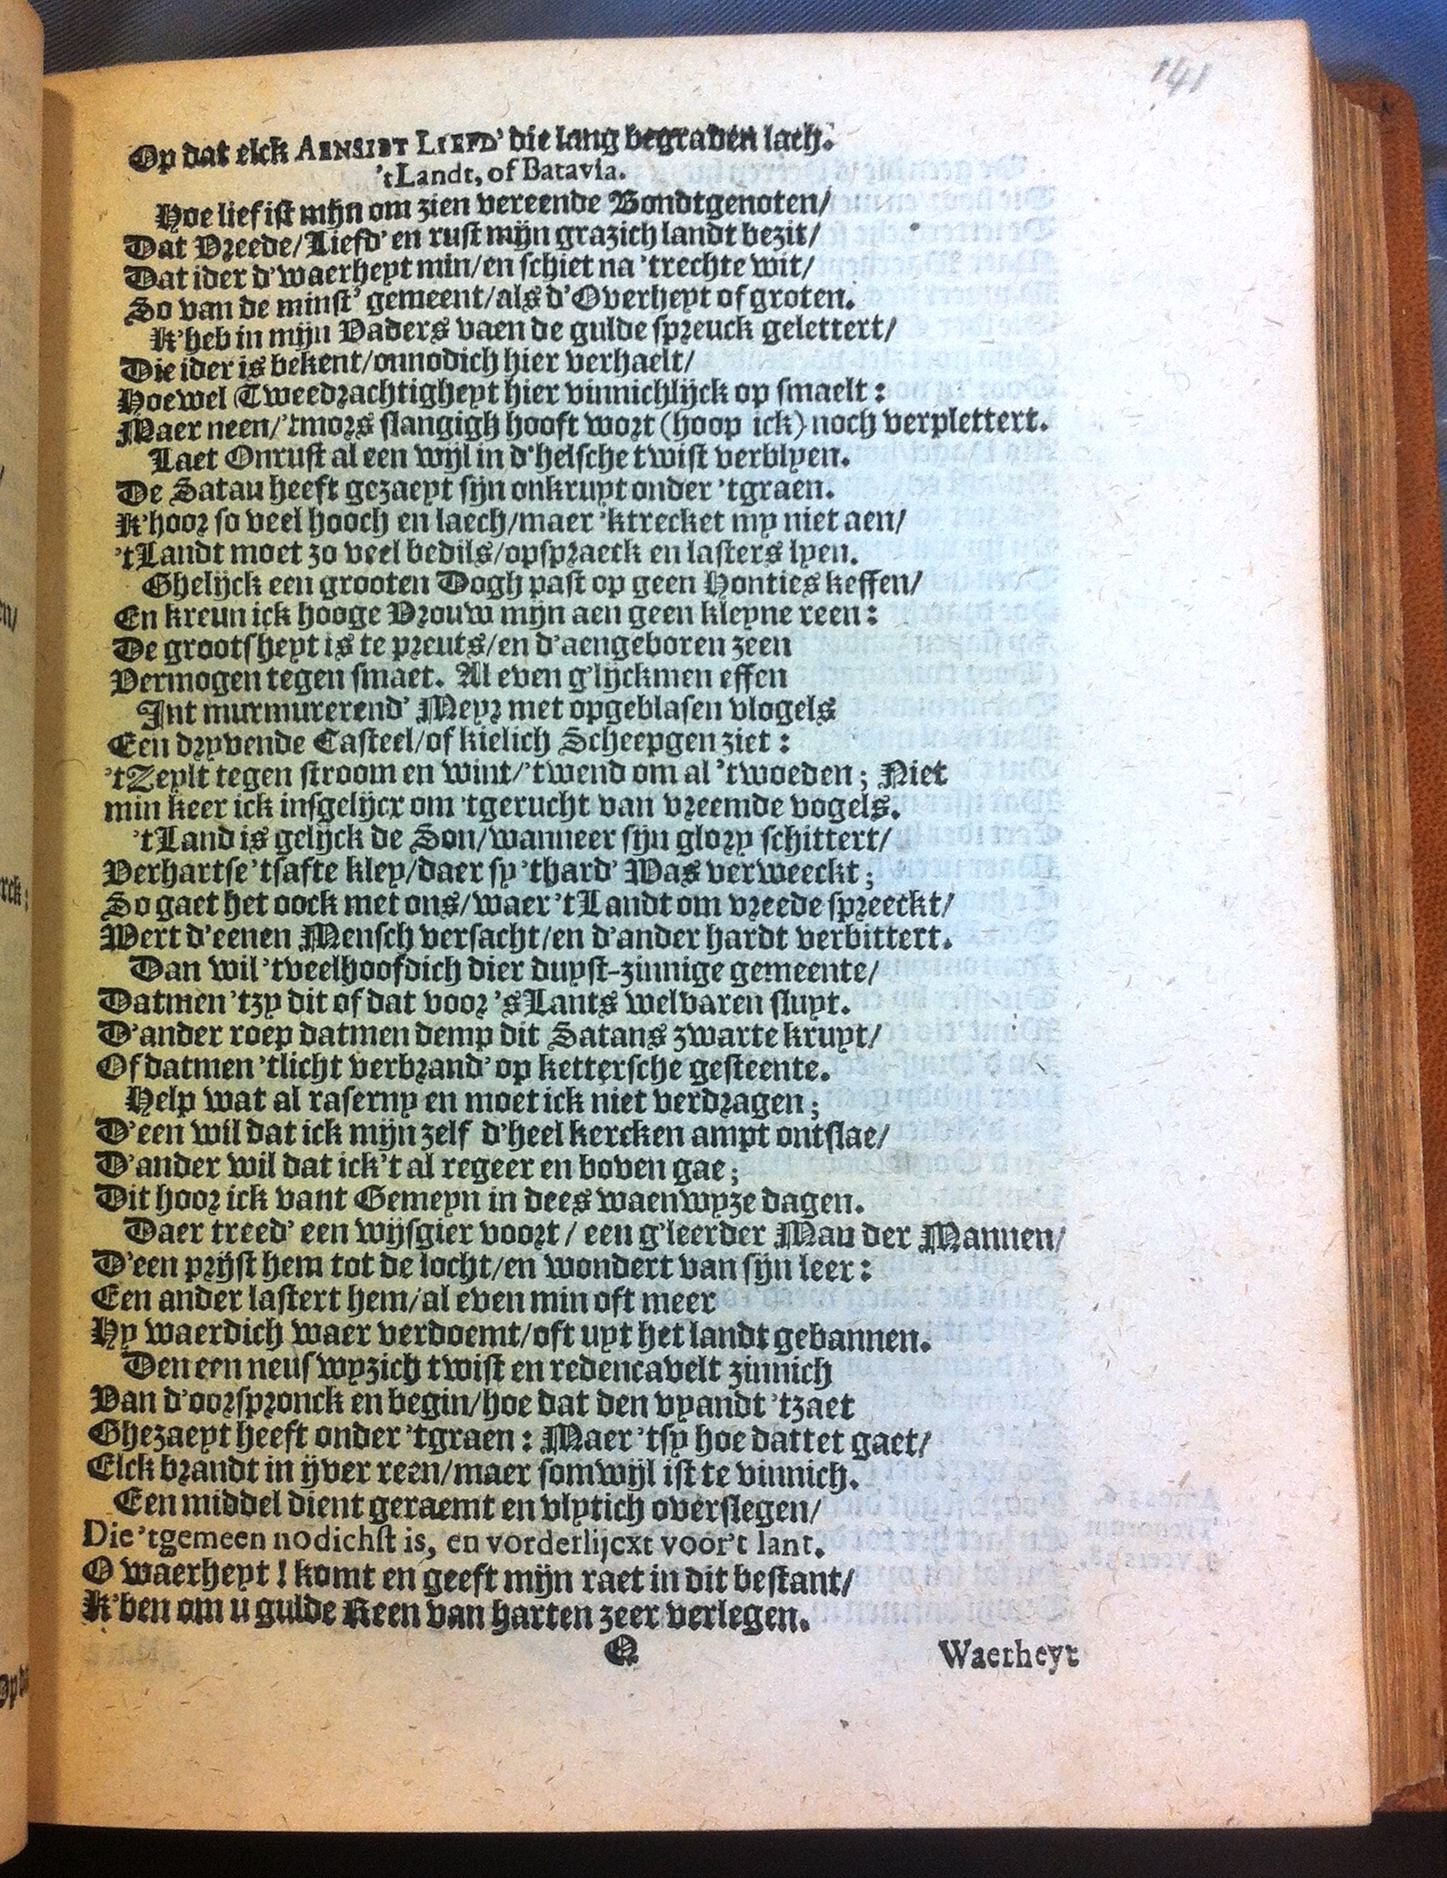 141
Op dat elck AENSIET LIEFD' die lang begraven lach.
'tLandt, of Batavia.
Hoe lief ist mijn om zien vereende Bondtgenoten/
Dat Vreede/Liefd' en rust mijn grazich landt bezit/
Dat ider d'waerheyt min/en schiet na 'trechte wit/
So van de minst' gemeent/als d'Overheyt of groten.
K'heb in mijn Vaders vaen de gulde spreuck gelettert/
Die ider is bekent/onnodich hier verhaelt/
Hoewel Tweedrachtigheyt hier vinnichlijck op smaelt:
Maer neen/'tmors slangigh hooft wort (hoop ick) noch verplettert.
Laet Onrust al een wijl in d'helsche twist verblyen.
De Satan heeft gezaeyt sijn onkruyt onder 'tgraen.
K'hoor so veel hooch en laech/maer 'ktrecket my niet aen/
'tLandt moet zo veel bedils/opspraeck en lasters lyen.
Ghelijck een grooten Dogh past op geen Honties keffen/
En kreun ick hooge Vrouw mijn aen geen kleyne reen:
De grootsheyt is te preuts/en d'aengeboren zeen
Vermogen tegen smaet. Al even g'lijckmen effen
Int murmurerend' Meyr met opgeblasen vlogels
Een dryvende Casteel/of kielich Scheepgen ziet:
'tZeylt tegen stroom en wint/'twend om al 'twoeden; Niet
min keer ick insgelijcx om 'tgerucht van vreemde vogels.
'tLand is gelijck de Son/wanneer sijn glory schittert/
Verhartse 'tsafte kley/daer sy 'thard' Was verweeckt;
So gaet het oock met ons/waer 'tLandt om vreede spreeckt/
Wert d'eenen Mensch versacht/en d'ander hardt verbittert.
Dan wil 'tveelhoofdich dier duyst-zinnige gemeente/
Datmen 'tzy dit of dat voor 'sLants welvaren sluyt.
D'ander roep datmen demp dit Satans zwarte kruyt/
Of datmen 'tlicht verbrand' op kettersche gesteente.
Help wat al raserny en moet ick niet verdragen;
D'een wil dat ick mijn zelf d'heel kercken ampt ontslae/
D'ander wil dat ick't al regeer en boven gae;
Dit hoor ick vant Gemeyn in dees waenwyze dagen.
Daer treed' een wijsgier voort / een g'leerder Man der Mannen/
D'een prijst hem tot de locht/en wondert van sijn leer:
Een ander lastert hem/al even min oft meer
Hy waerdich waer verdoemt/oft uyt het landt gebannen.
Den een neuswyzich twist en redencavelt zinnich
Van d'oorspronck en begin/hoe dat den vyandt 'tzaet
Ghezaeyt heeft onder 'tgraen: Maer 'tsy hoe dattet gaet/
Elck brandt in ijver reen/maer somwijl ist te vinnich.
Een middel dient geraemt en vlytich overslegen/
Die 'tgemeen nodichst is, en vorderlijcxt voor't lant.
O waerheyt! komt en geeft mijn raet in dit bestant/
K'ben om u gulde Reen van harten zeer verlegen.
Q
Waerheyt